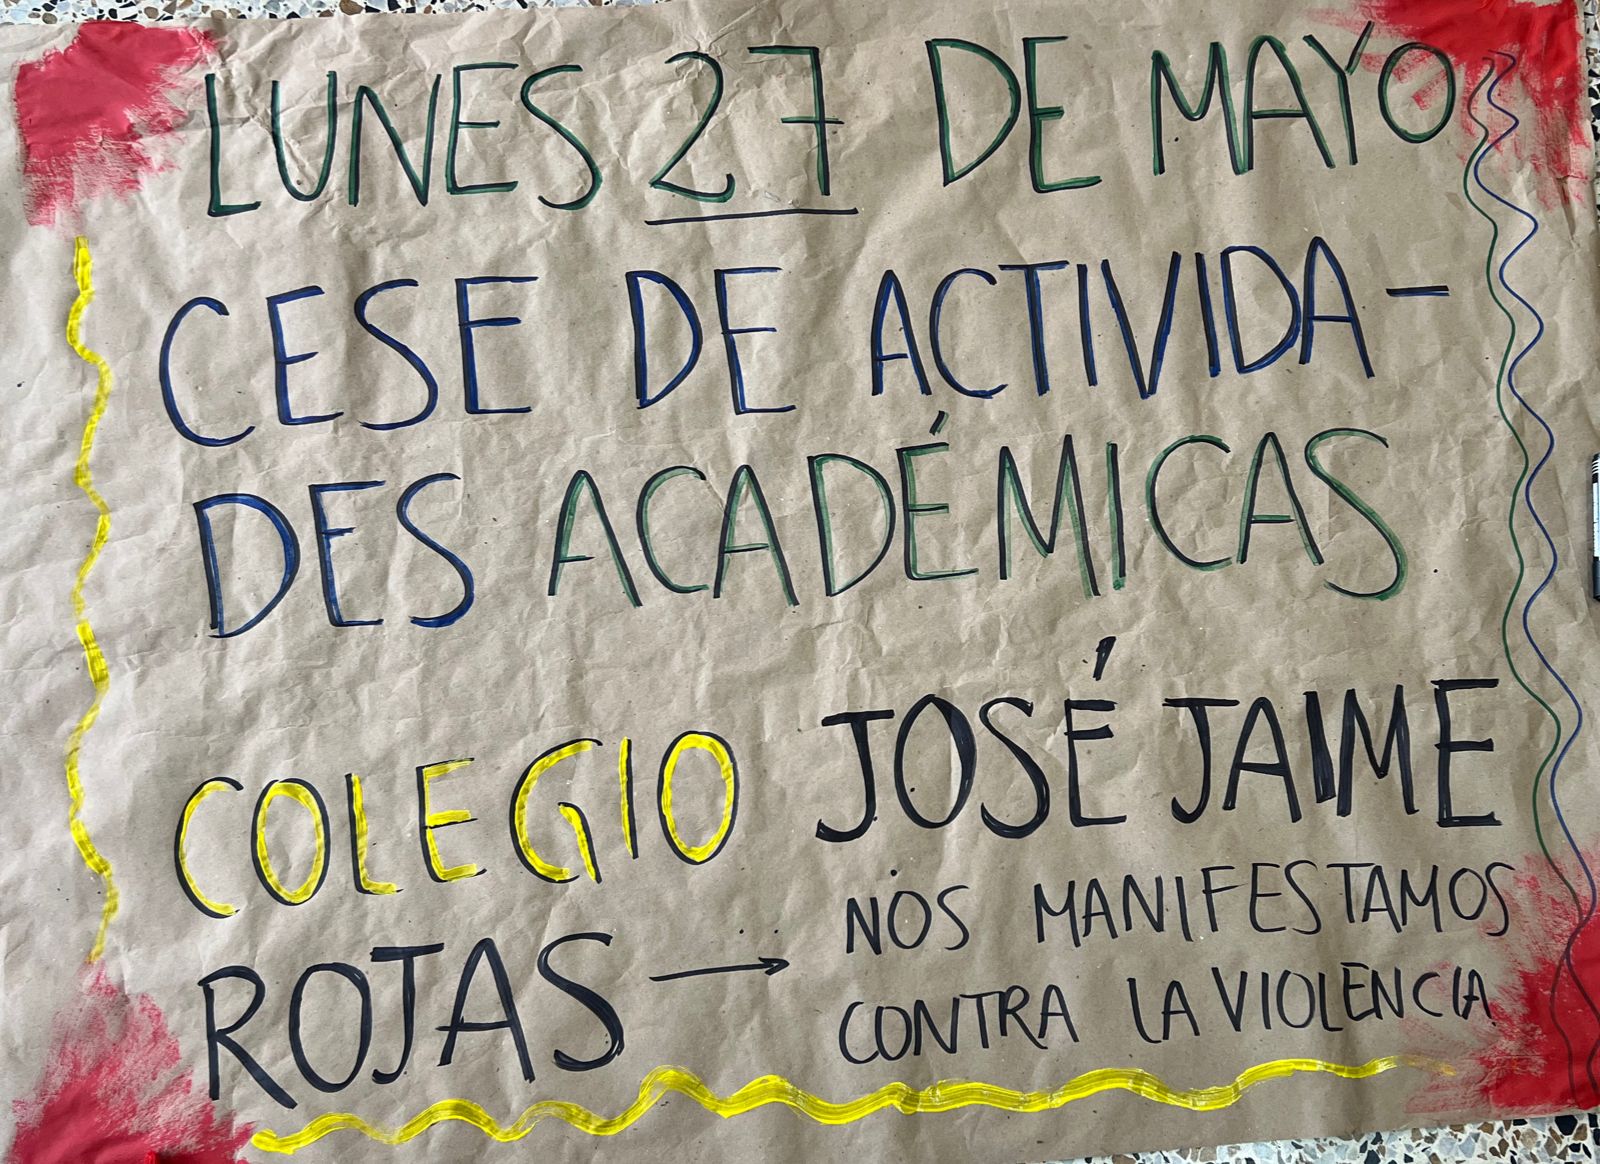 LUNES 27 DE MAYO
CESE DE ACTIVIDA-
DES ACADÉMICAS
COLEGIO JOSÉ JAIME
ROJAS → NOS MANIFESTAMOS
CONTRA LA VIOLENCIA